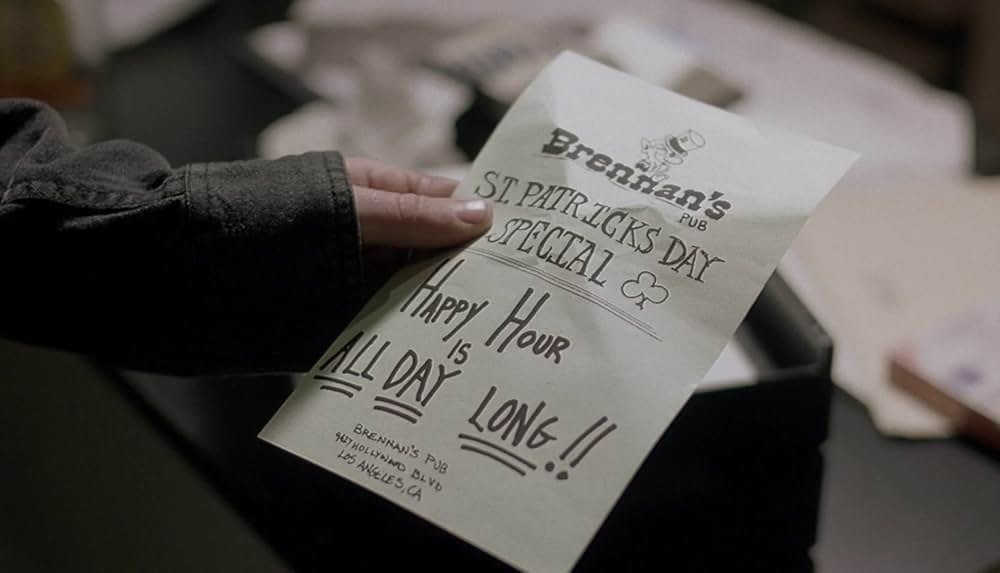 Brennan's
PUB
ST. PATRICKS DAY
SPECIAL
HAPPY HOUR
IS
ALL DAY LONG!!
BRENNAN'S PUB
HOLLYWOOD BLVD
LOS ANGELES, CA